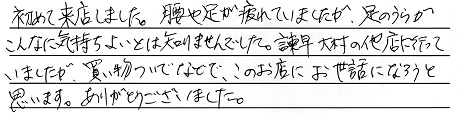 初めて来店しました。腰や足が疲れていましたが、足のうらが
こんなに気持ちよいとは知りませんでした。諫早大村の他店に行って
いましたが、買い物ついでなどで、このお店にお世話になろうと
思います。ありがとうございました。